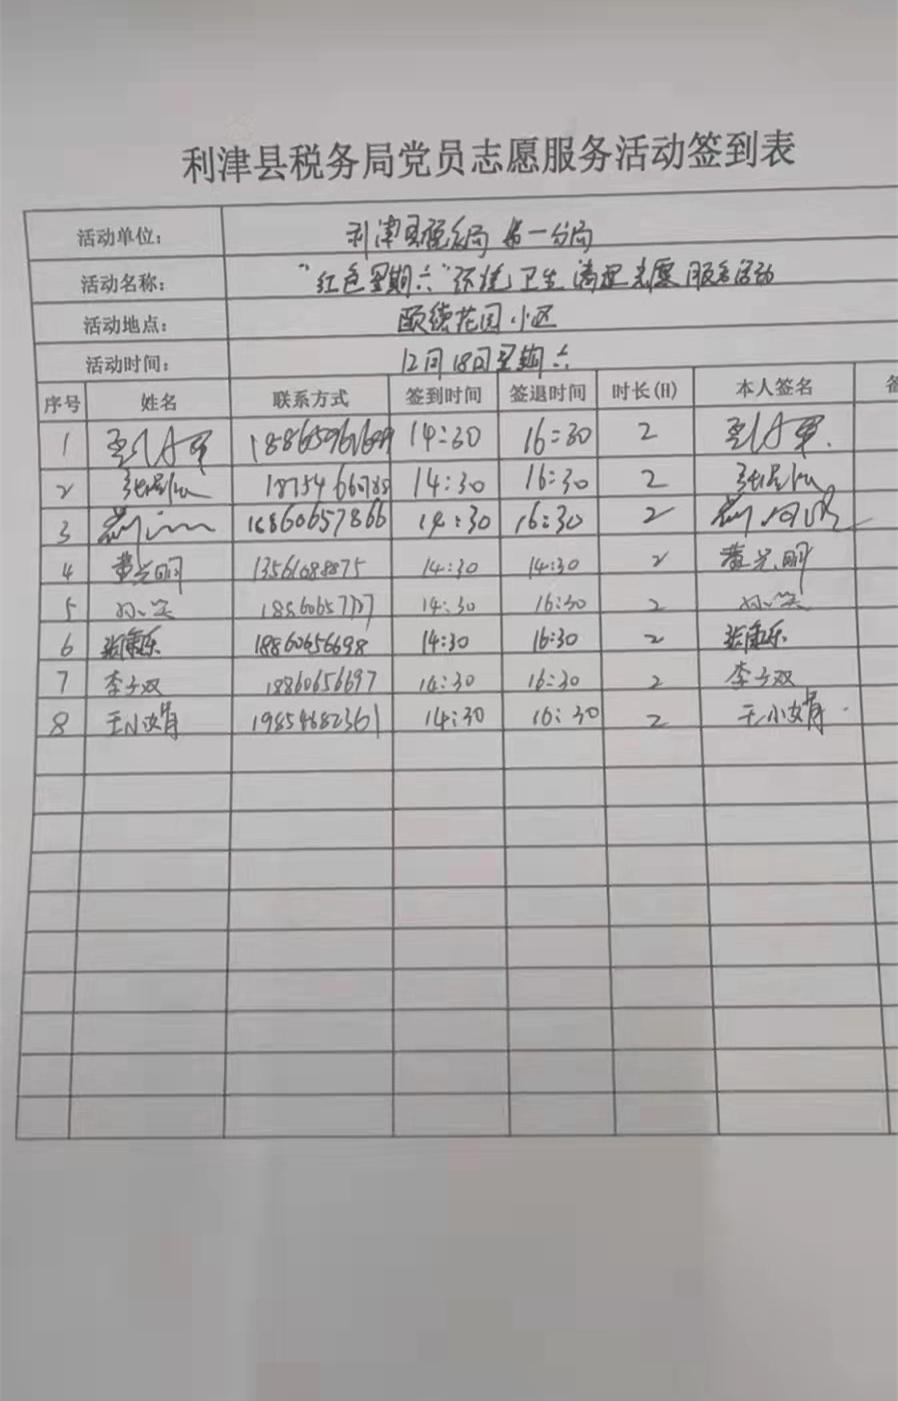 利津县税务局党员志愿服务活动签到表
活动单位： 利津县税务局第一分局
活动名称： "红色星期六"环境卫生清理志愿服务活动
活动地点： 颐绣花园小区
活动时间： 12月18日星期六
序号 姓名 联系方式 签到时间 签退时间 时长(H) 本人签名
1 14:30 16:30 2
2 14:30 16:30 2
3 18860657866 14:30 16:30 2
4 黄兰明 13561088875 14:30 14:30 2 黄兰明
5 14:30 16:30 2
6 张康乐 18860656698 14:30 16:30 2 张康乐
7 李子双 18860656697 14:30 16:30 2 李子双
8 王小婧 19854682361 14:30 16:30 2 王小婧